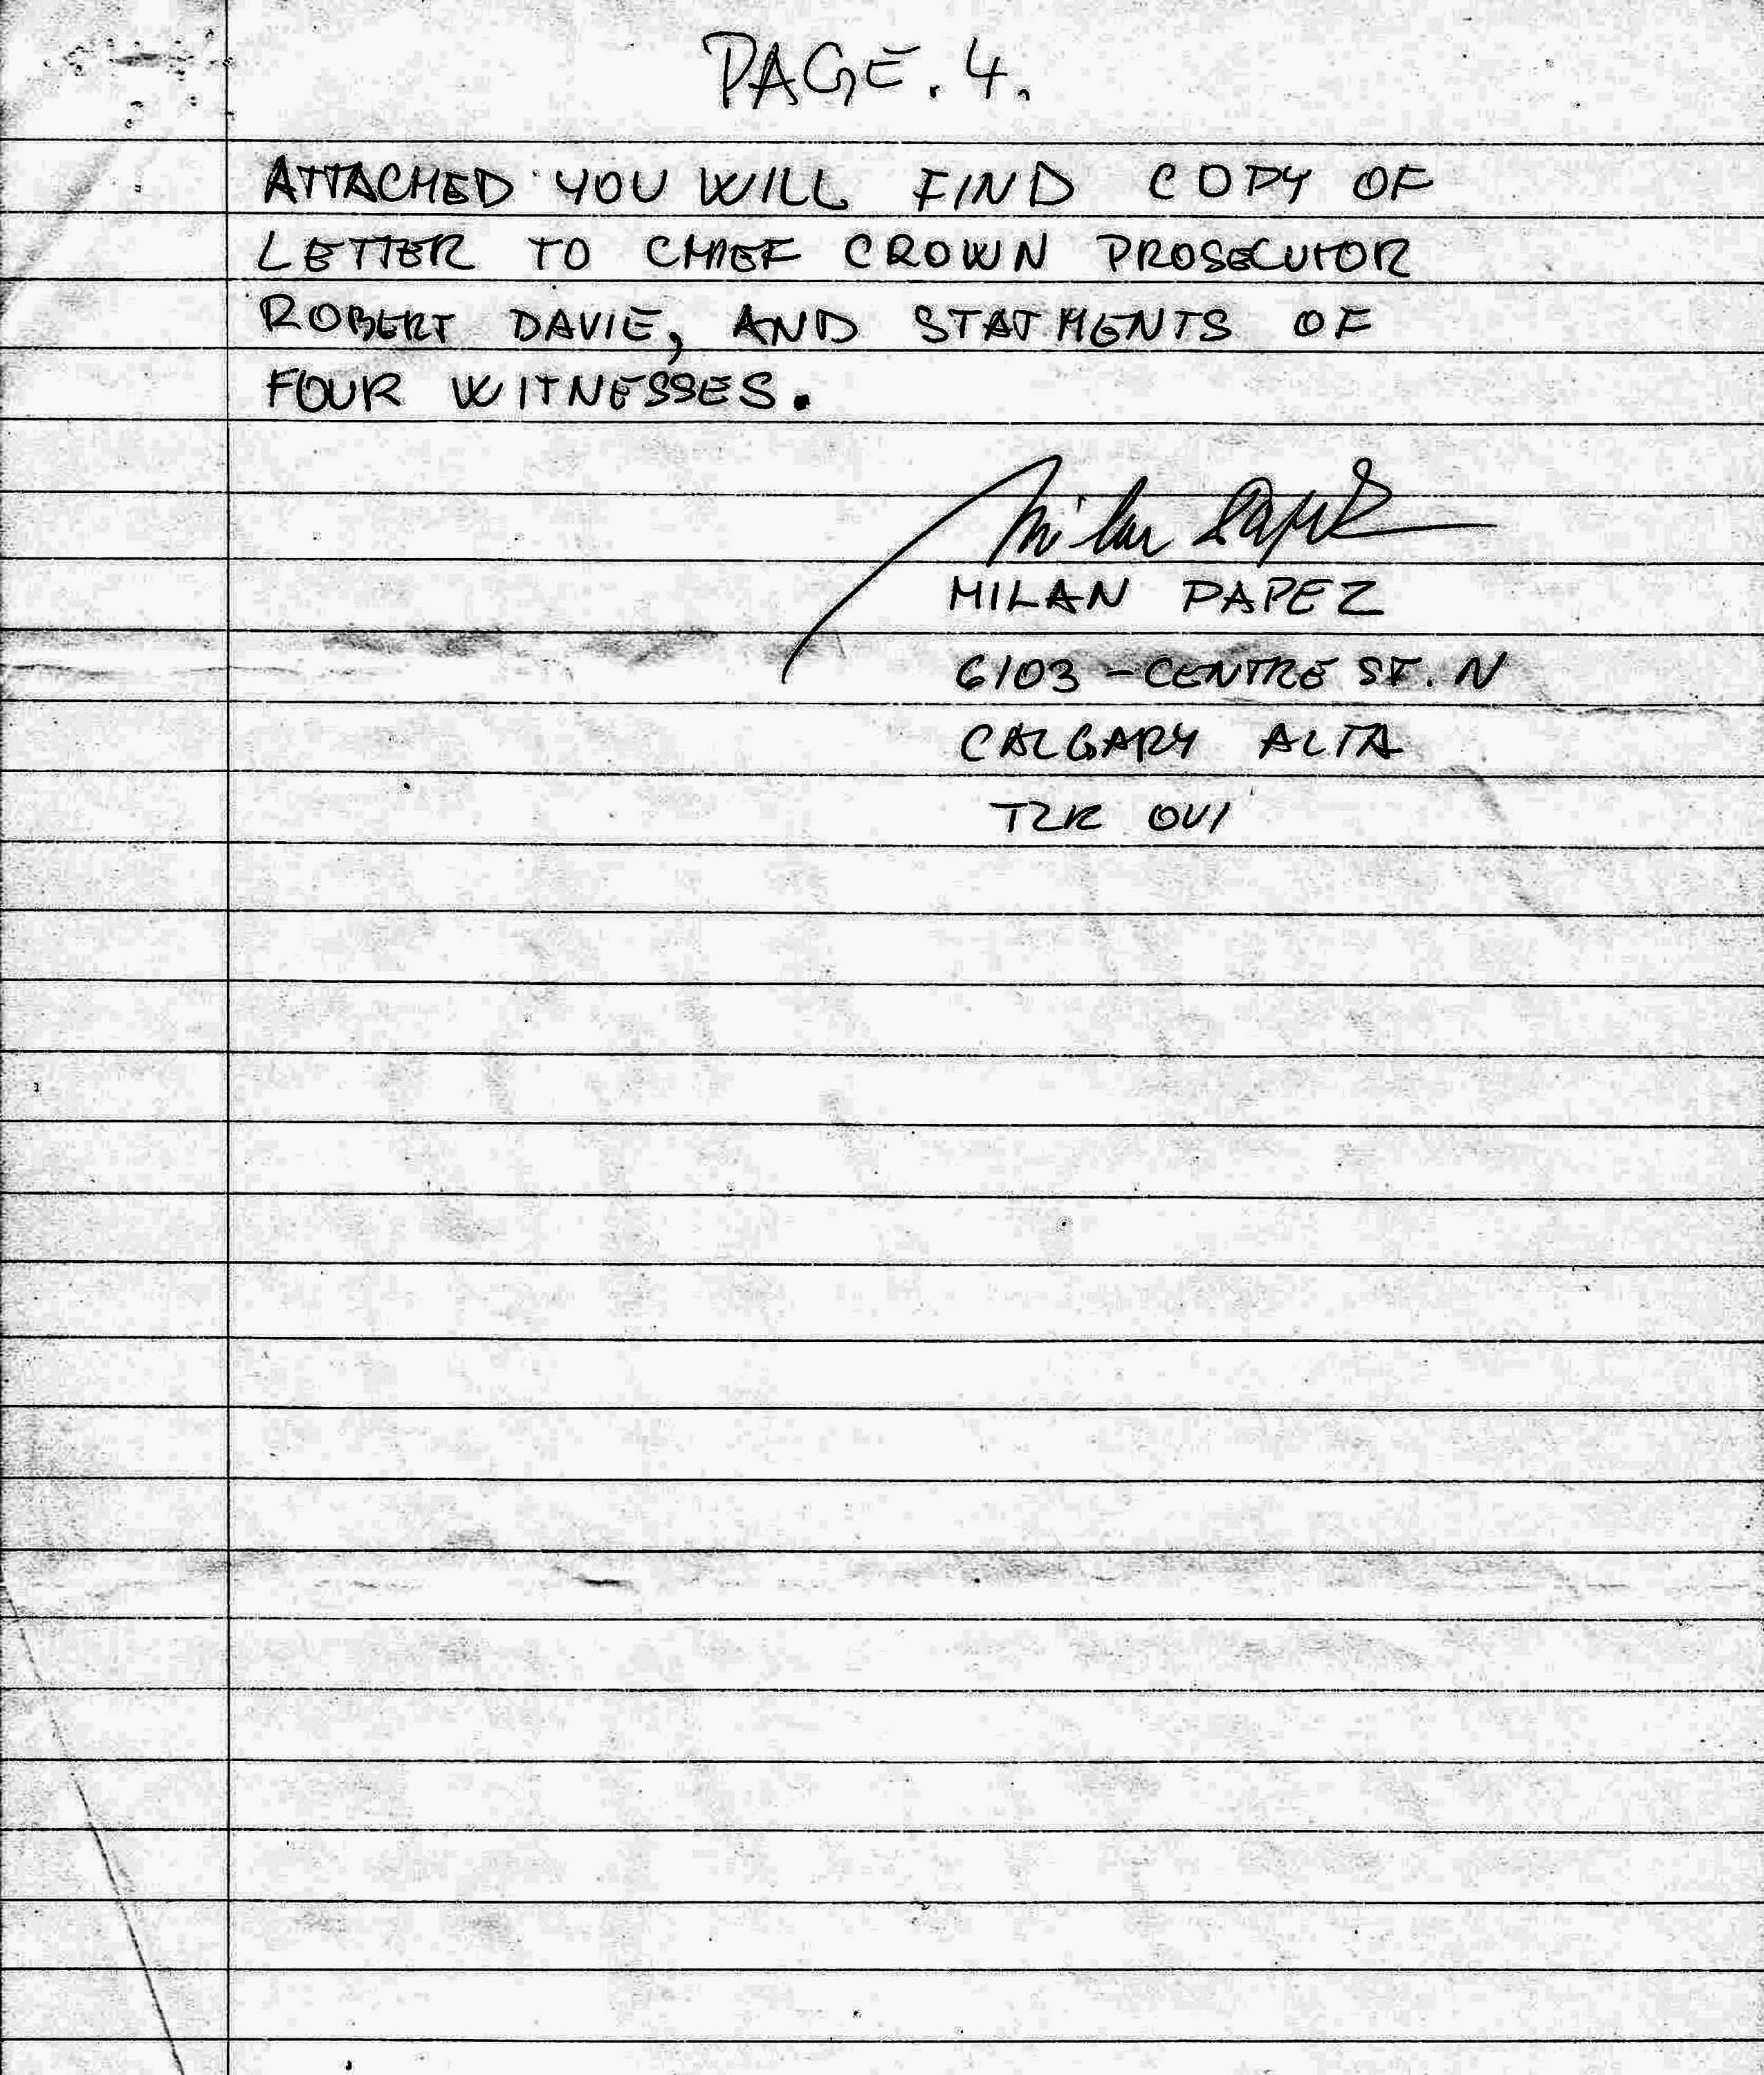 PAGE. 4.
ATTACHED YOU WILL FIND COPY OF
LETTER TO CHIEF CROWN PROSECUTOR
ROBERT DAVIE, AND STATMENTS OF
FOUR WITNESSES.
Milan Papez
MILAN PAPEZ
6103 - CENTRE ST. N
CALGARY ALTA
T2K 0V1